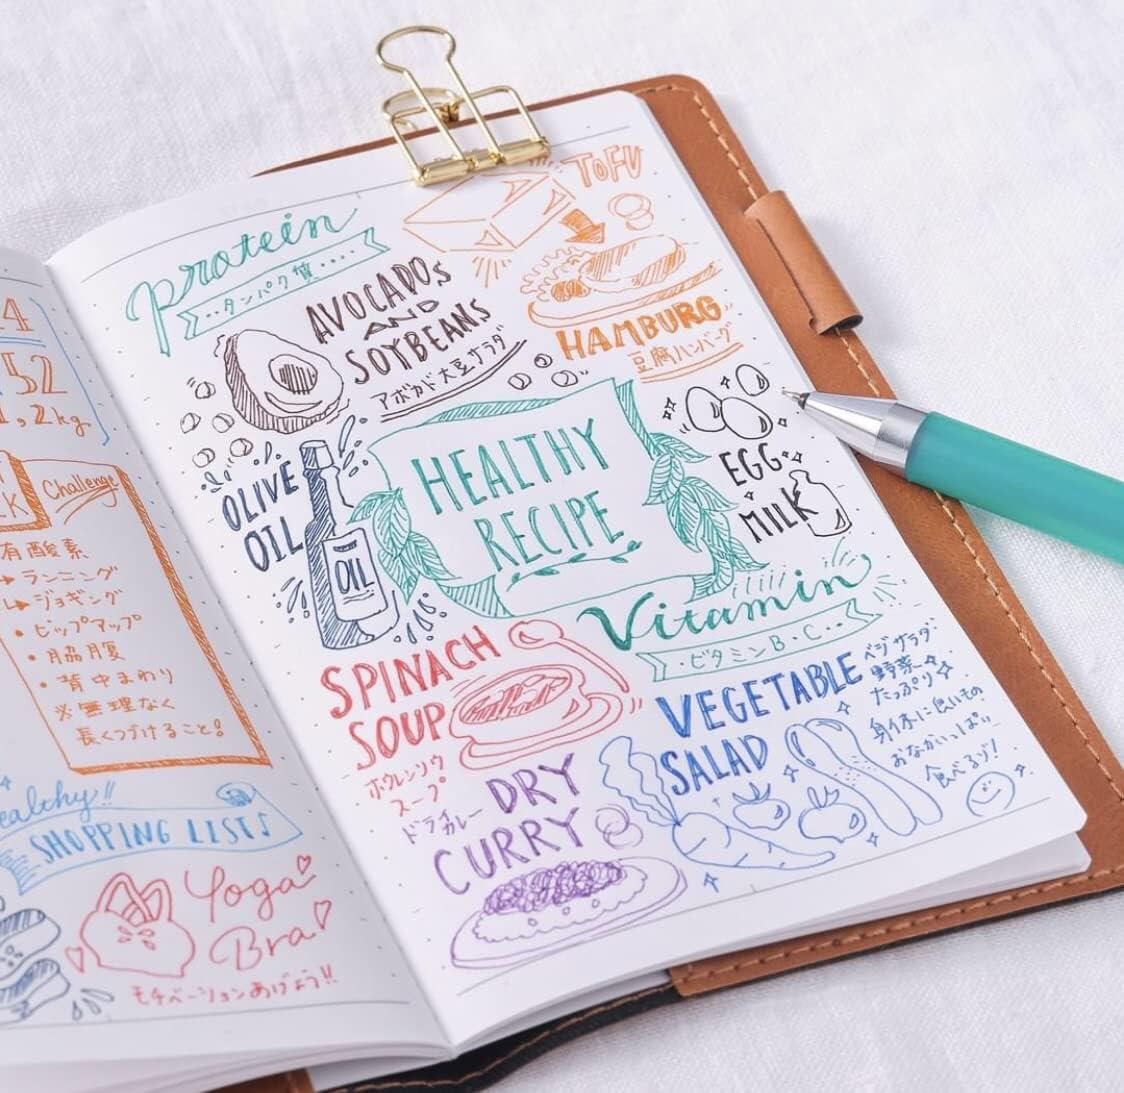 4
52
1,2kg
Challenge
有酸素
ランニング
ジョギング
・ヒップアップ
・脇腹
・背中まわり
※無理なく
長くつづけること!
SHOPPING LIST♪
Yoga
Bra
モチベーションあげよう!!
protein
··タンパク質····
AVOCADOS
AND
SOYBEANS
アボカド大豆サラダ
TOFU
HAMBURG
豆腐ハンバーグ
OLIVE
OIL
OIL
HEALTHY
RECIPE
EGG
MILK
Vitamin
・ビタミンB・C・・
SPINACH
SOUP
ホウレンソウ
スープ
VEGETABLE
SALAD
ベジサラダ
野菜
たっぷり
身体に良いもの
おなかいっぱい
食べるゾ!
DRY
CURRY
ドライ
カレー